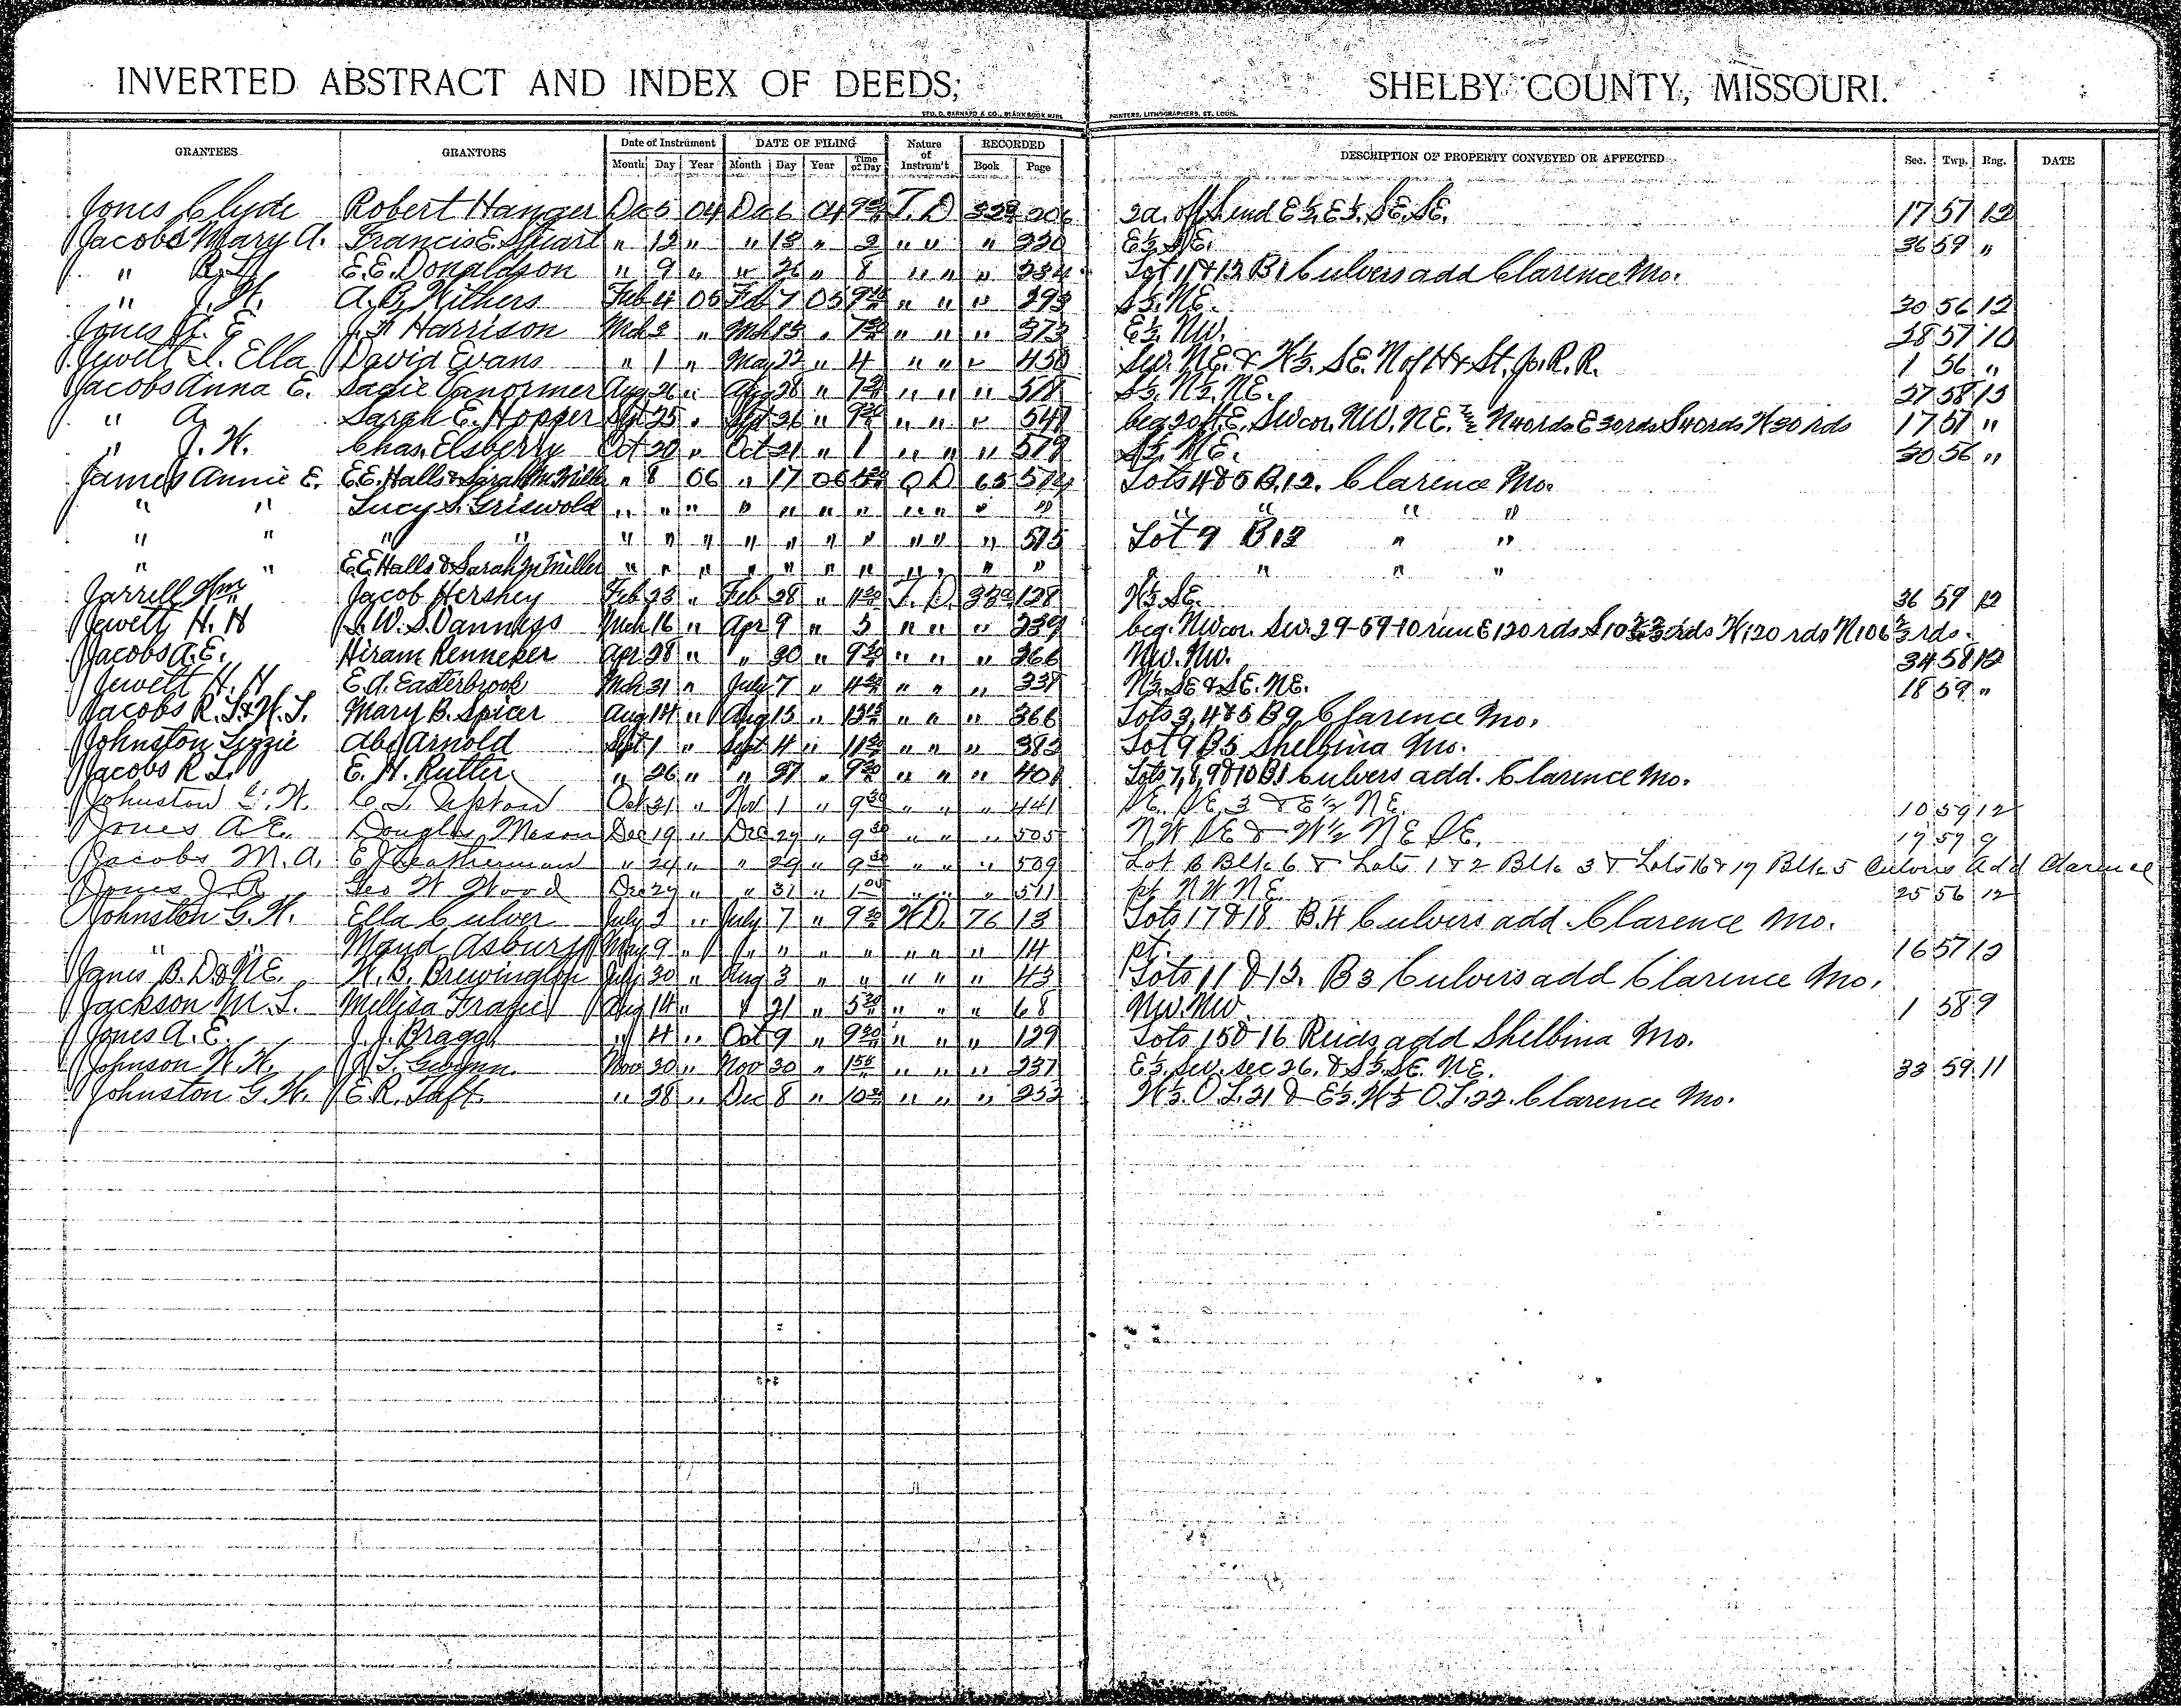 INVERTED ABSTRACT AND INDEX OF DEEDS; SHELBY COUNTY, MISSOURI.
STD. D. BARNARD & CO., BLANK BOOK MFRS. PRINTERS, LITHOGRAPHERS, ST. LOUIS.
GRANTEES GRANTORS Date of Instrument DATE OF FILING Nature of Instrum't RECORDED DESCRIPTION OF PROPERTY CONVEYED OR AFFECTED Sec. Twp. Rng. DATE
Month Day Year Month Day Year Time of Day Book Page
Jones Clyde Robert Hanger Dec 5 04 Dec 6 04 T. D 206 2a. off S. end E½. E½. SE. SE. 17 57 12
Jacobs Mary A. Francis E. Stuart " 12 " " 13 " 2 " " " 220 E½ 36 59 "
" R. L. E. E. Donaldson " 9 " " 26 " 8 " " " 234 Lot 11 & 12 B1 Culvers add Clarence Mo.
" J. H. A. B. Withers Feb 4 05 Feb 7 05 " " " 293 S½. NE. 30 56 12
Jones A. E J. A Harrison Mch 3 " Mch 13 " 7 30 " " " 373 E½. NW. 28 57 10
Jewett I. Ella David Evans " 1 " May 22 " 4 " " " 450 SW. NE. & W½. SE. N of H & St. Jo. R. R. 1 56 "
Jacobs Anna E. Sadie Vanormer Aug 26 " Aug 28 " " " " 518 S½. N½. NE. 27 58 13
" A Sarah E. Hopper Sept 25 " Sept 26 " " " " 541 beg 20 ft E. SW cor. NW. NE. N 40 rds E 30 rds S 40 rds W 30 rds 17 57 "
" J. H. Chas. Elsberry Oct 20 " Oct 21 " 1 " " " 579 S½. NE. 30 56 "
James Annie E. E. E. Halls & Sarah M. Miller " 8 06 " 17 06 Q D 65 574 Lots 4 & 5 B. 12. Clarence Mo.
" " Lucy S. Griswold " " " " " " " " " " " " " " "
" " " " " " " " " " " " " " 575 Lot 9 B 12 " "
" " E. E. Halls & Sarah M Miller " " " " " " " " " " " " " " "
Jarrell Wm Jacob Hershey Feb 23 " Feb 28 " T. D. 128 W½ SE. 36 59 12
Jewett H. H L. W. S. Vanness Mch 16 " Apr 9 " 3 " " " 239 beg. NW cor. SW. 29-59-10 run E 120 rds W 120 rds N 106⅔ rds.
Jacobs A. E. Hiram Renneker Apr 28 " " 30 " 9 30 " " " 266 NW. NW. 34 58 12
Jewett H. H E. A. Easterbrook Mch 31 " July 7 " " " " 331 N½. SE & SE. NE. 18 59 "
Jacobs R. L. & H. J. Mary B. Spicer Aug 14 " Aug 15 " " " " 366 Lots 3, 4 & 5 B 9 Clarence Mo.
Johnston Lizzie Abe Arnold Sept 1 " Sept 4 " " " " 383 Lot 9 B 5 Shelbina Mo.
Jacobs R. L. E. H. Rutter " 26 " " 27 " 9 30 " " " 401 Lots 7, 8, 9 & 10 B1 Culvers add. Clarence Mo.
Johnston G. W. C. L. Tipton Oct 31 " Nov 1 " 9 30 " " " 441 SE. SE 3 & E½ NE. 10 59 12
Jones A. E. Douglas Mason Dec 19 " Dec 29 " 9 30 " " " 505 NW SE & W½ NE SE. 19 59 9
Jacobs M. A. E J Leatherman " 24 " " 29 " 9 30 " " " 509 Lot 6 Blk. 6 & Lots 1 & 2 Blk. 3 & Lots 16 & 17 Blk. 5 Culvers Add Clarence
Jones J. R. Geo W Wood Dec 29 " " 31 " " " " 511 pt. NW NE. 25 56 12
Johnston G. W. Ella Culver July 3 " July 7 " 9 30 W D. 76 13 Lots 17 & 18 B. 4 Culvers add. Clarence Mo.
" " Maud Asbury May 9 " " " " " " " " 14 pt. 16 57 12
Janes B. D & N E. W. B. Brewington July 30 " Aug 3 " " " " " 43 Lots 11 & 12. B 3 Culvers add Clarence Mo.
Jackson M. L. Mellisa Frazier Aug 14 " " 21 " 5 30 " " " 68 NW. NW. 1 58 9
Jones A. E. J. J. Bragg " 4 " Oct 9 " 9 30 " " " 129 Lots 15 & 16 Reids add Shelbina Mo.
Johnson W. H. J. S. Gwynn Nov 20 " Nov 30 " " " " 237 E½. SW. sec 26. & S½. SE. NE. 33 59 11
Johnston G. W. E. R. Taft " 28 " Dec 8 " " " " 253 W½. O. L. 21 & E½. W½ O. L. 22. Clarence Mo.